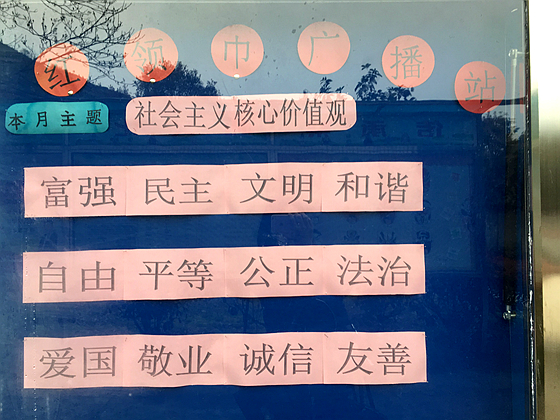 红领巾广播站
本月主题 社会主义核心价值观
富强 民主 文明 和谐
自由 平等 公正 法治
爱国 敬业 诚信 友善